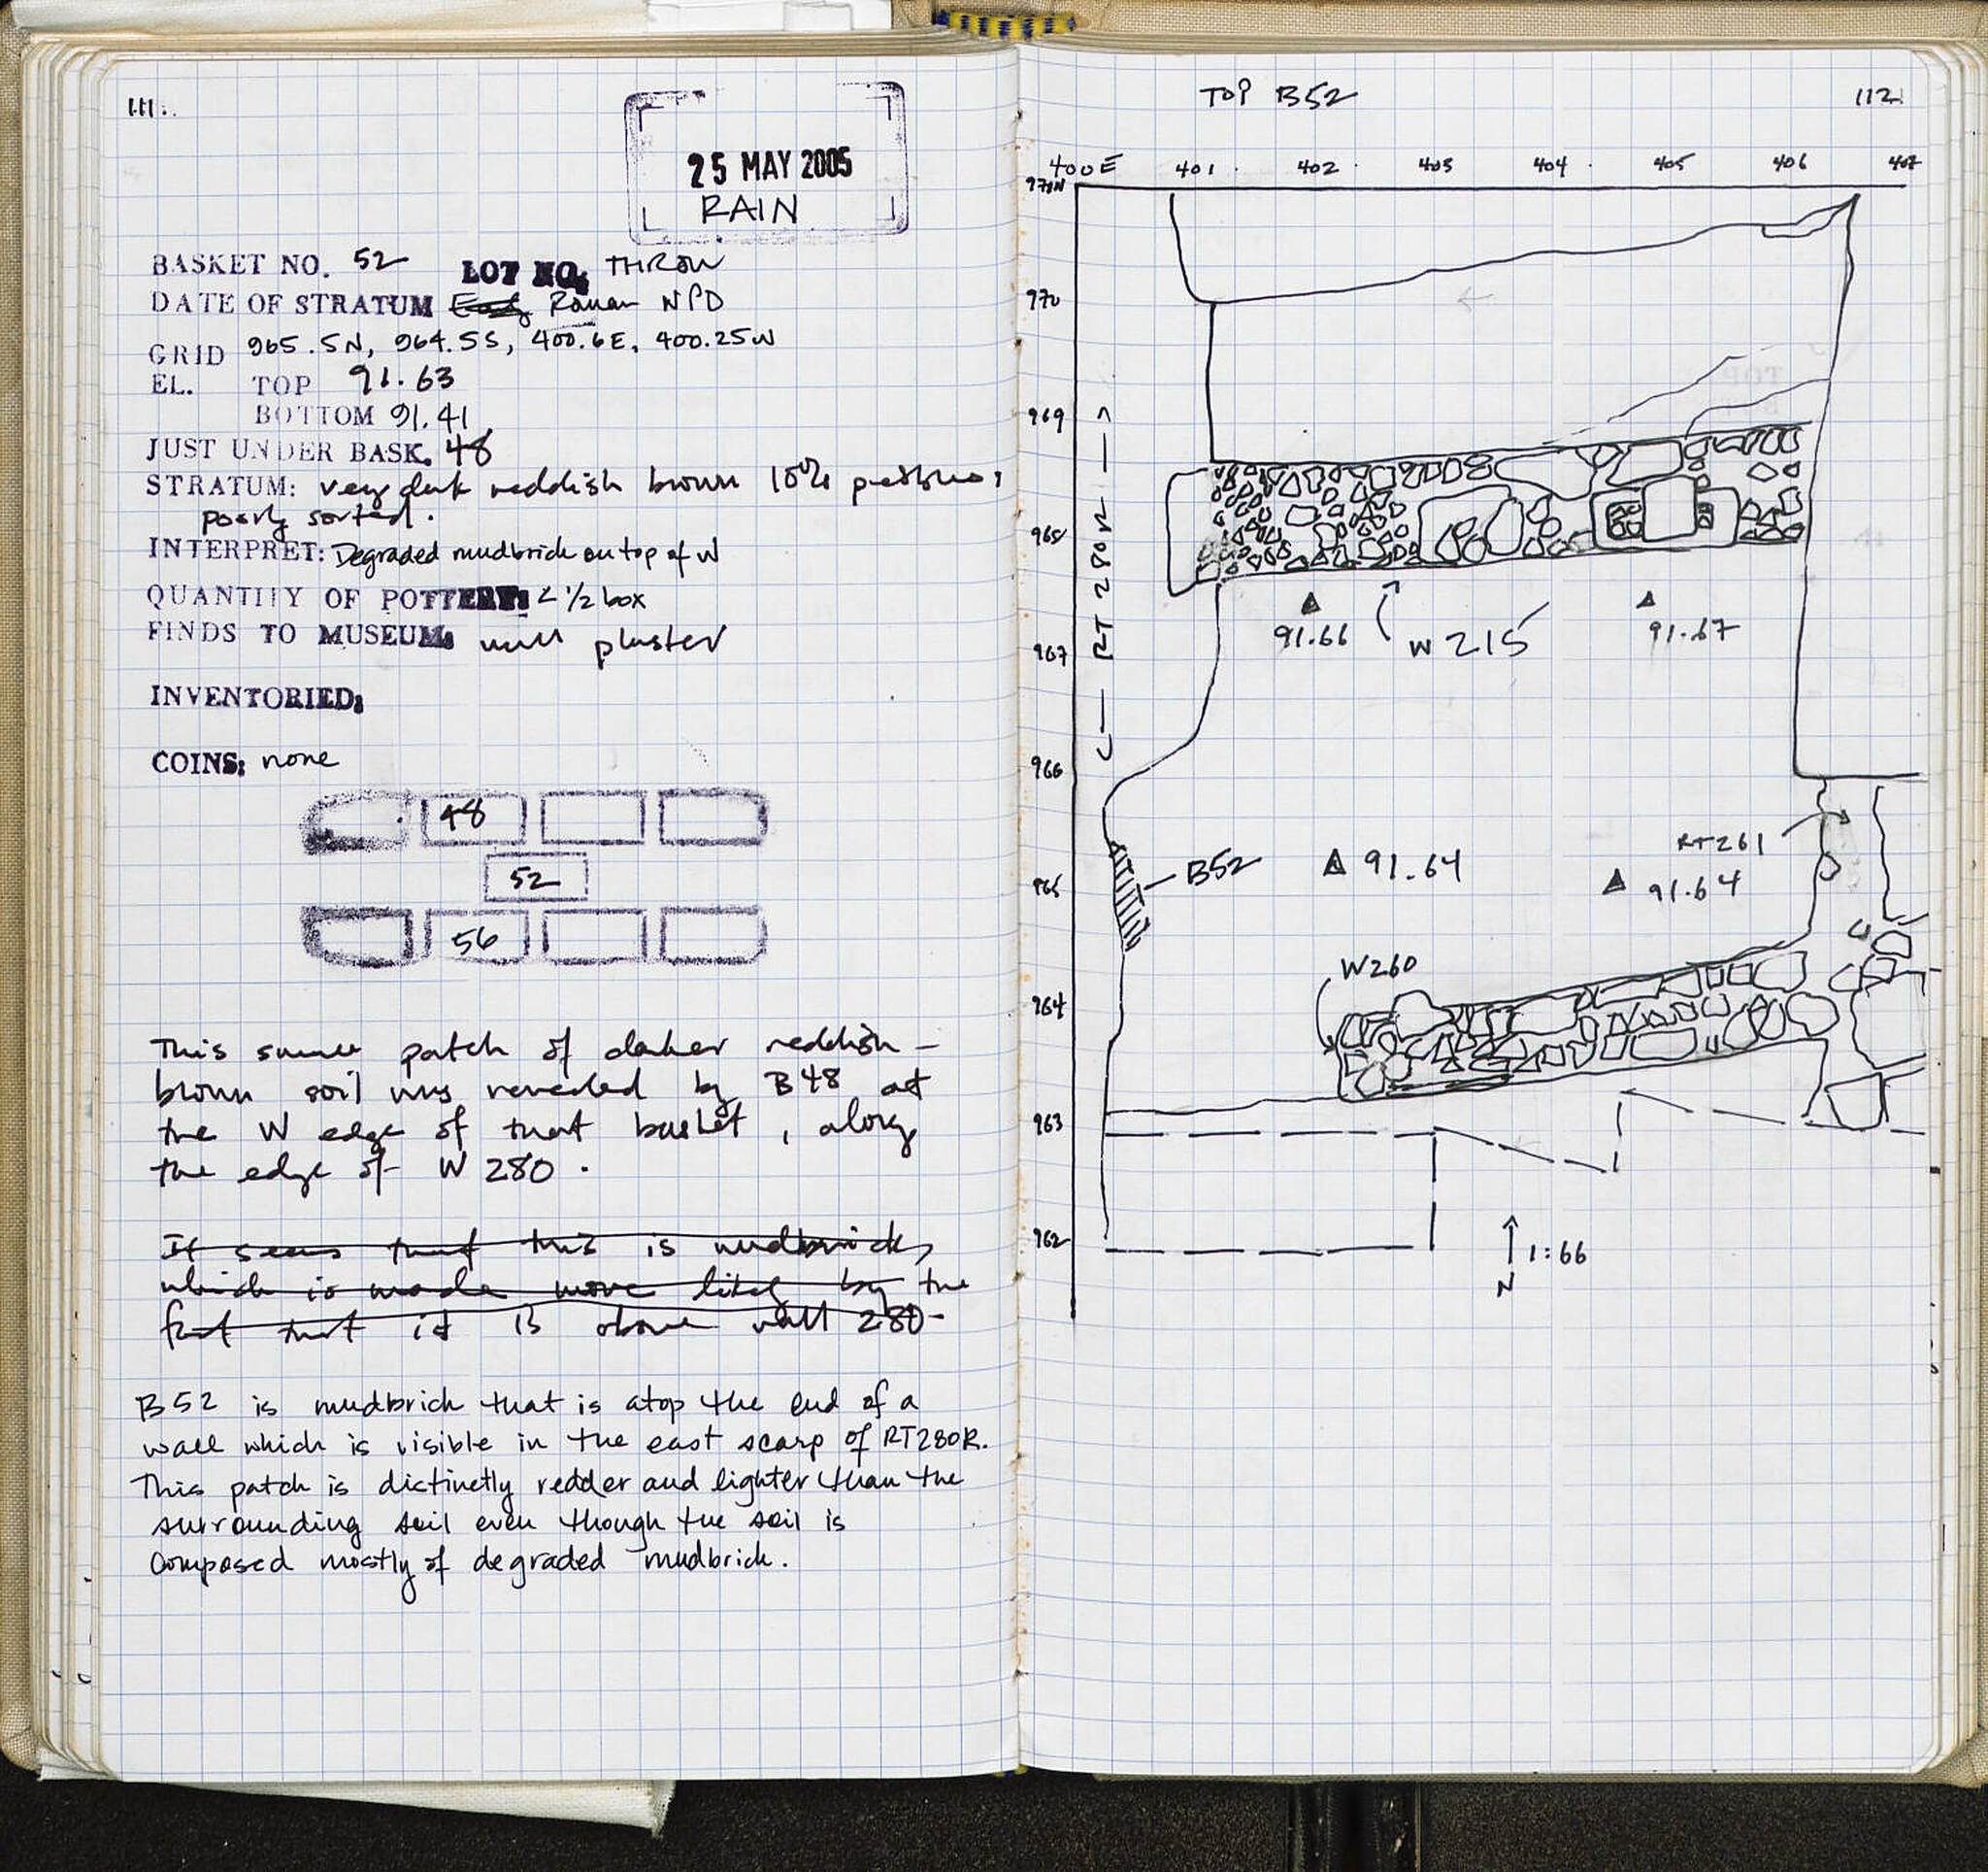 111.
25 MAY 2005
RAIN
BASKET NO. 52 LOT NO. THROW
DATE OF STRATUM Early Roman NPD
GRID 965.5N, 964.5S, 400.6E, 400.25W
EL. TOP 91.63
BOTTOM 91.41
JUST UNDER BASK. 48
STRATUM: very dark reddish brown 10% pebbles,
poorly sorted.
INTERPRET: Degraded mudbrick on top of W
QUANTITY OF POTTERY: < 1/2 box
FINDS TO MUSEUM: wall plaster
INVENTORIED:
COINS: none
48
52
56
This small patch of darker reddish-
brown soil was revealed by B48 at
the W edge of that basket, along
the edge of W 280.
It seems that this is mudbrick,
which is made more likely by the
fact that it is above wall 280-
B52 is mudbrick that is atop the end of a
wall which is visible in the east scarp of RT280R.
This patch is distinctly redder and lighter than the
surrounding soil even though the soil is
composed mostly of degraded mudbrick.
TOP B52
112
400E 401 402 403 404 405 406 407
971N
970
969
968
967
966
965
964
963
962
<— RT 280R —>
91.66
W 215
91.67
B52
91.64
RT261
91.64
W260
1:66
N